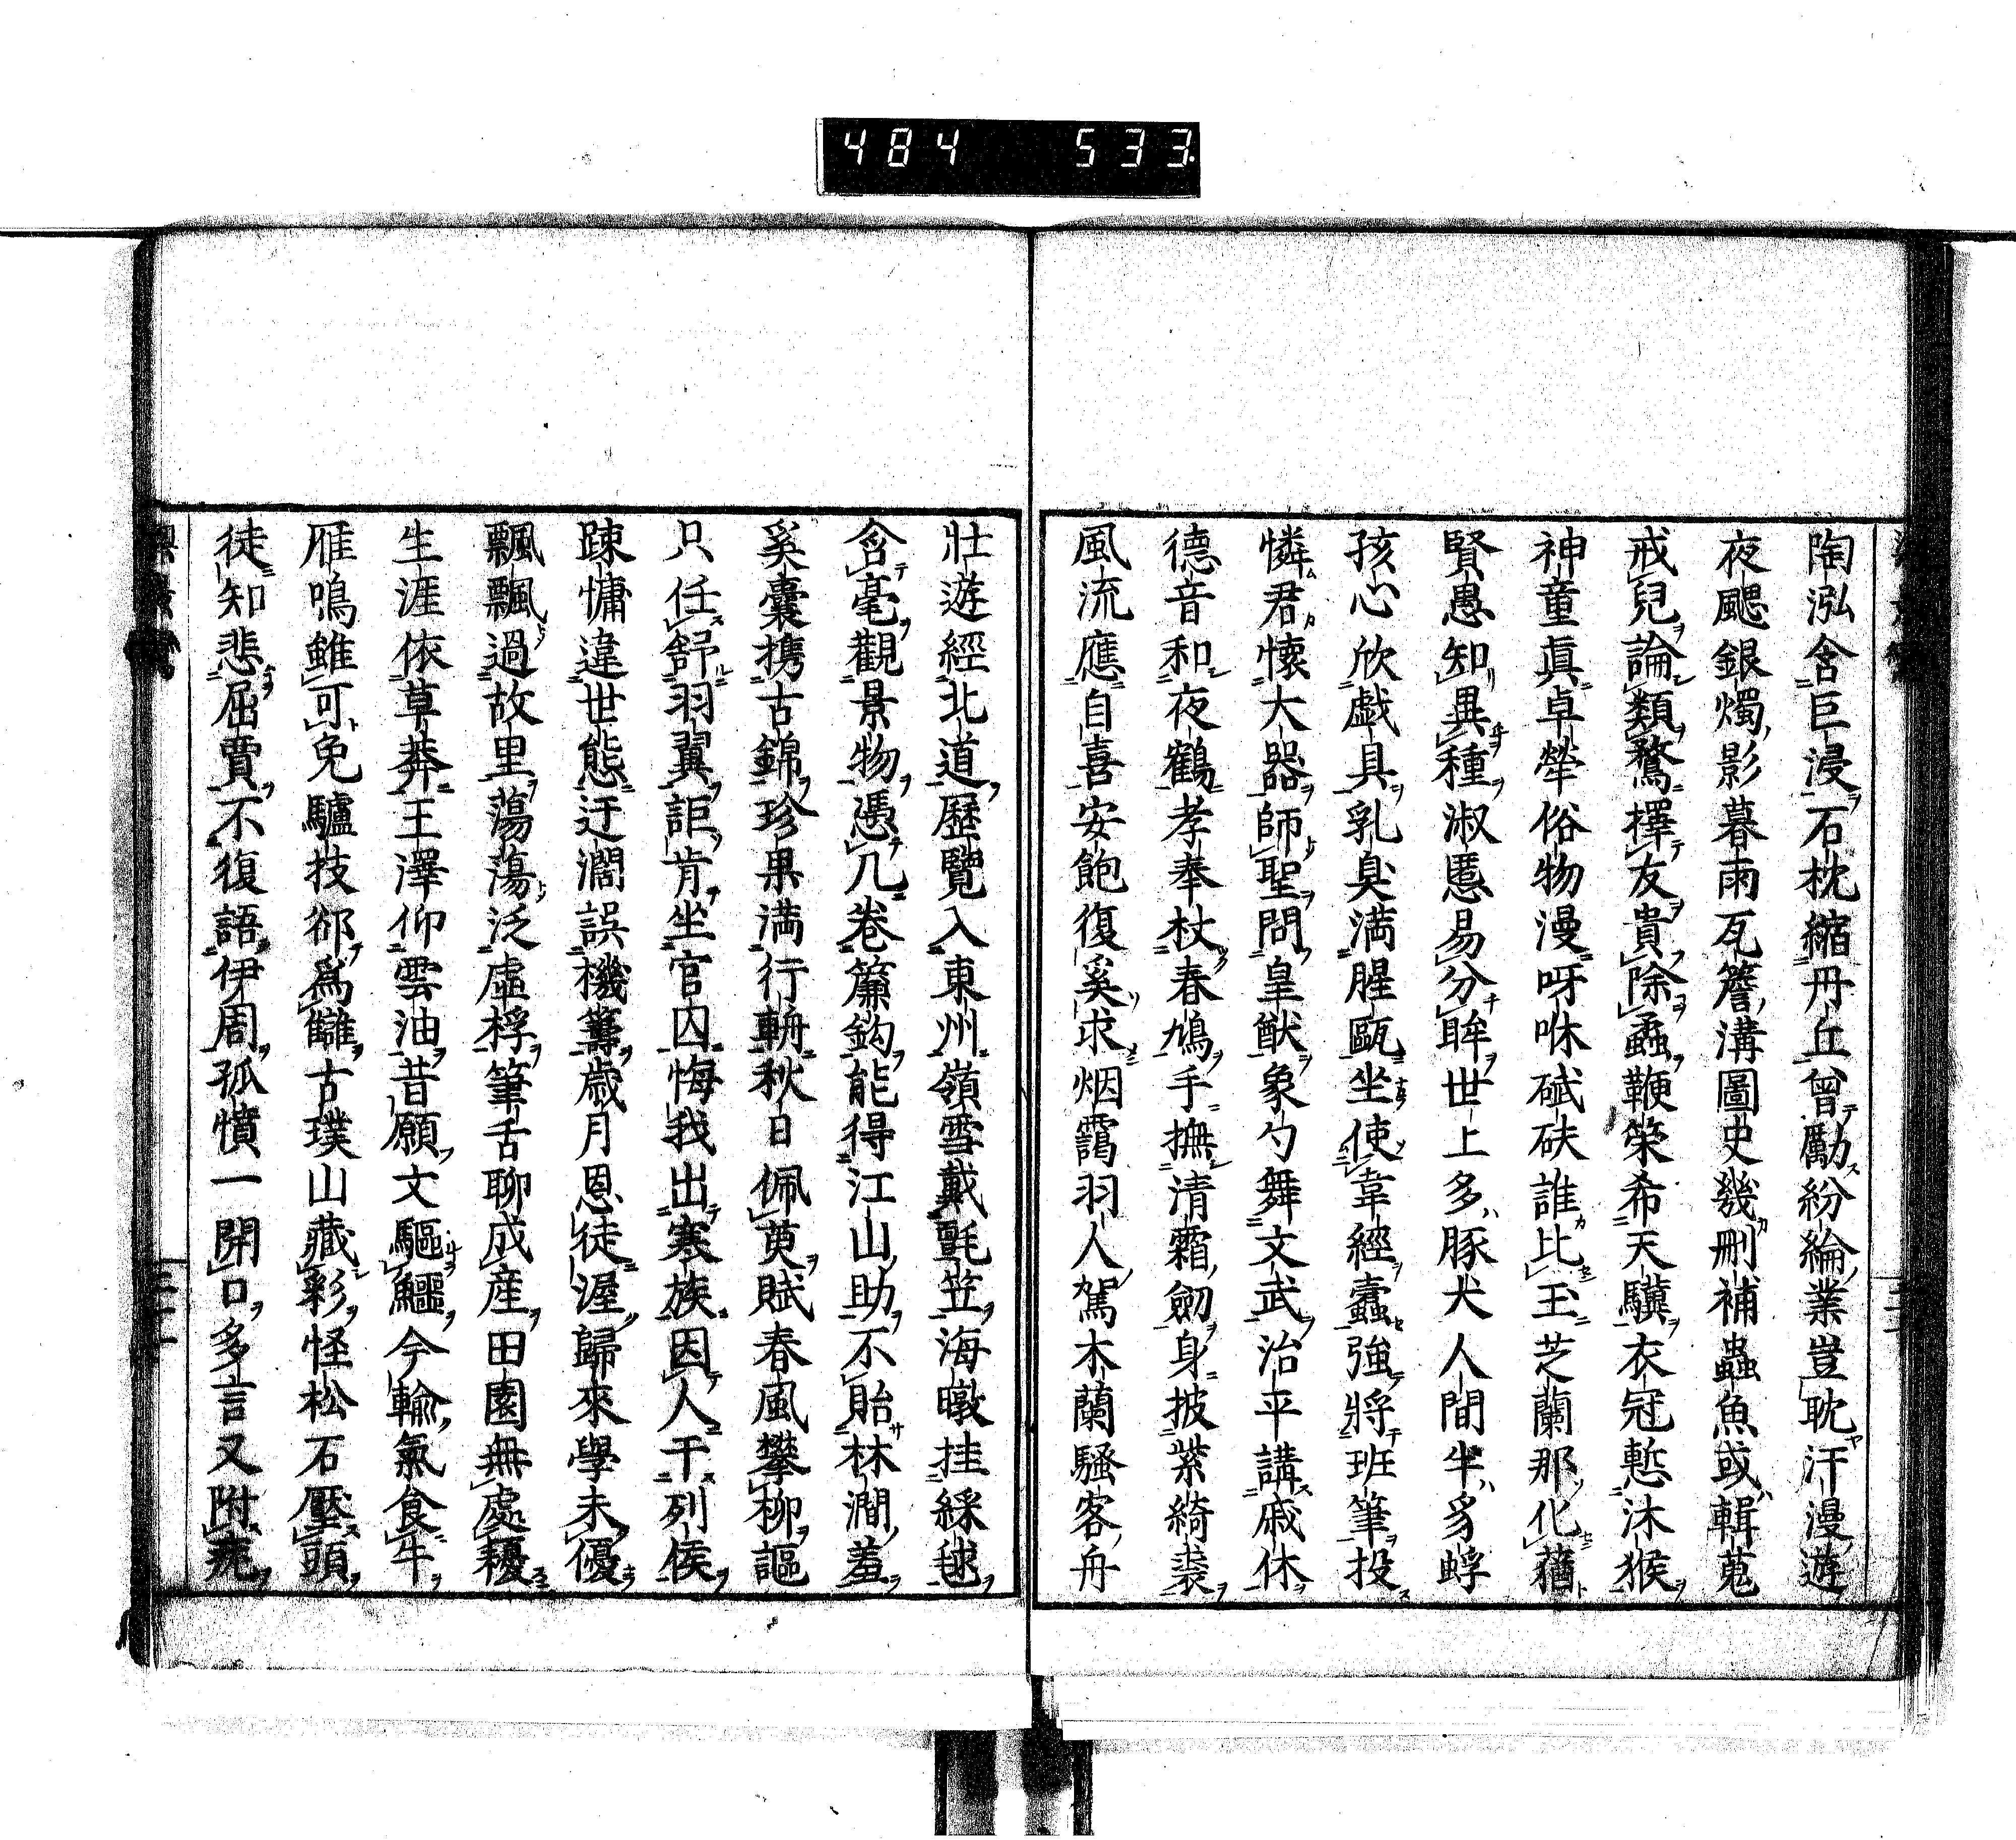 484 533.
陶泓含巨浸石枕縮丹丘曾勵紛綸業豈耽汗漫遊
夜颸銀燭影暮雨瓦簷溝圖史幾刪補蟲魚或輯蒐
戒兒論類鶩擇友貴除蟊鞭策希天驥衣冠慙沐猴
神童眞卓犖俗物漫呀咻碔砆誰比玉芝蘭那化蕕
賢愚知異種淑慝易分眸世上多豚犬人間半豸蜉
孩心欣戯具乳臭満腥甌坐使韋經蠹強將班筆投
憐君懷大器師聖問皇猷象勺舞文武治平講戚休
德音和夜鶴孝奉杖春鳩手撫清霜劒身披紫綺裘
風流應自喜安飽復奚求烟靄羽人駕木蘭騷客舟
壯遊經北道歷覽入東州嶺雪戴氈笠海暾挂綵毬
含毫觀景物憑几卷簾鈎能得江山助不貽林澗羞
奚囊携古錦珍果満行輈秋日佩萸賦春風攀柳謳
只任舒羽翼詎肯坐官囚悔我出寒族因人干列侯
踈慵違世態迂濶誤機籌歳月恩徒渥歸來學未優
飄飄過故里蕩蕩泛虛桴筆舌聊成産田園無處耰
生涯依草莽王澤仰雲油昔願文驅鱷今輸氣食牛
雁鳴雖可免驢技郤爲讎古璞山藏彩怪松石壓頭
徒知悲屈賈不復語伊周孤憤一開口多言又附疣
三十一